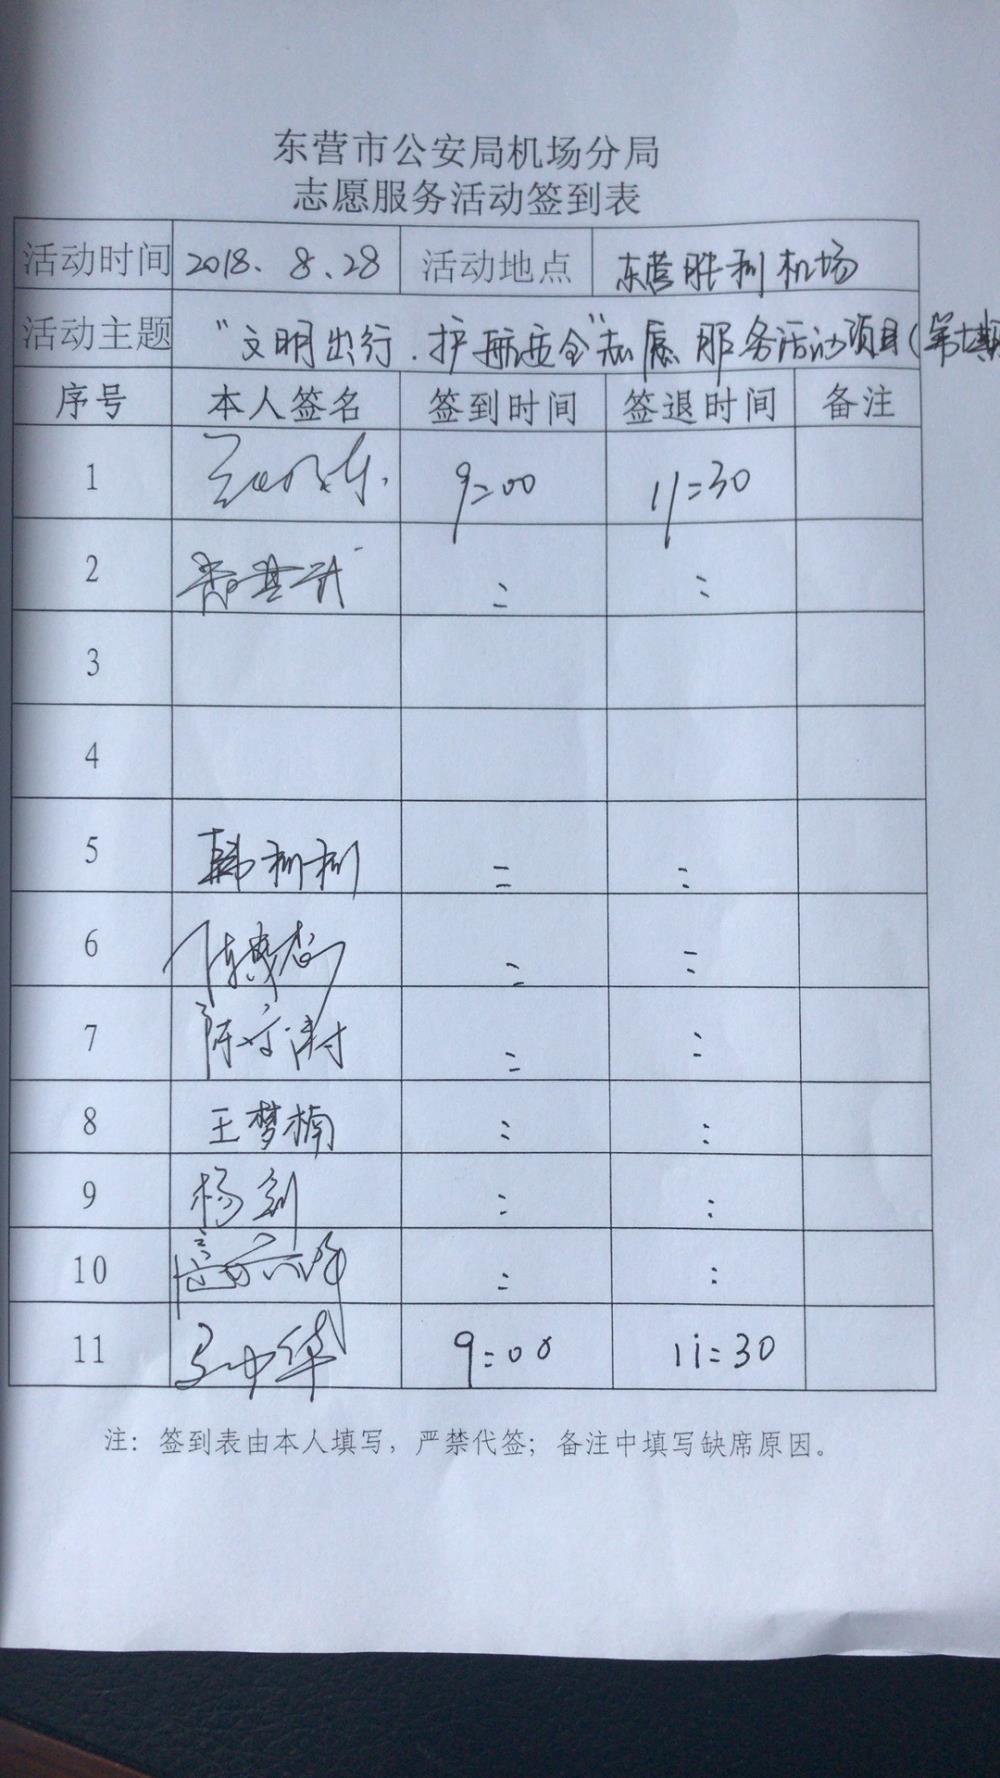 东营市公安局机场分局
志愿服务活动签到表
活动时间 2018.8.28 活动地点 东营胜利机场
活动主题 "文明出行.护航安全"志愿服务活动项目(第
序号 本人签名 签到时间 签退时间 备注
1 9:00 11:30
2 : :
3
4
5 韩利利 : :
6 陈 : :
7 陈 涛 : :
8 王梦楠 : :
9 杨剑 : :
10 : :
11 马中华 9:00 11:30
注：签到表由本人填写，严禁代签；备注中填写缺席原因。